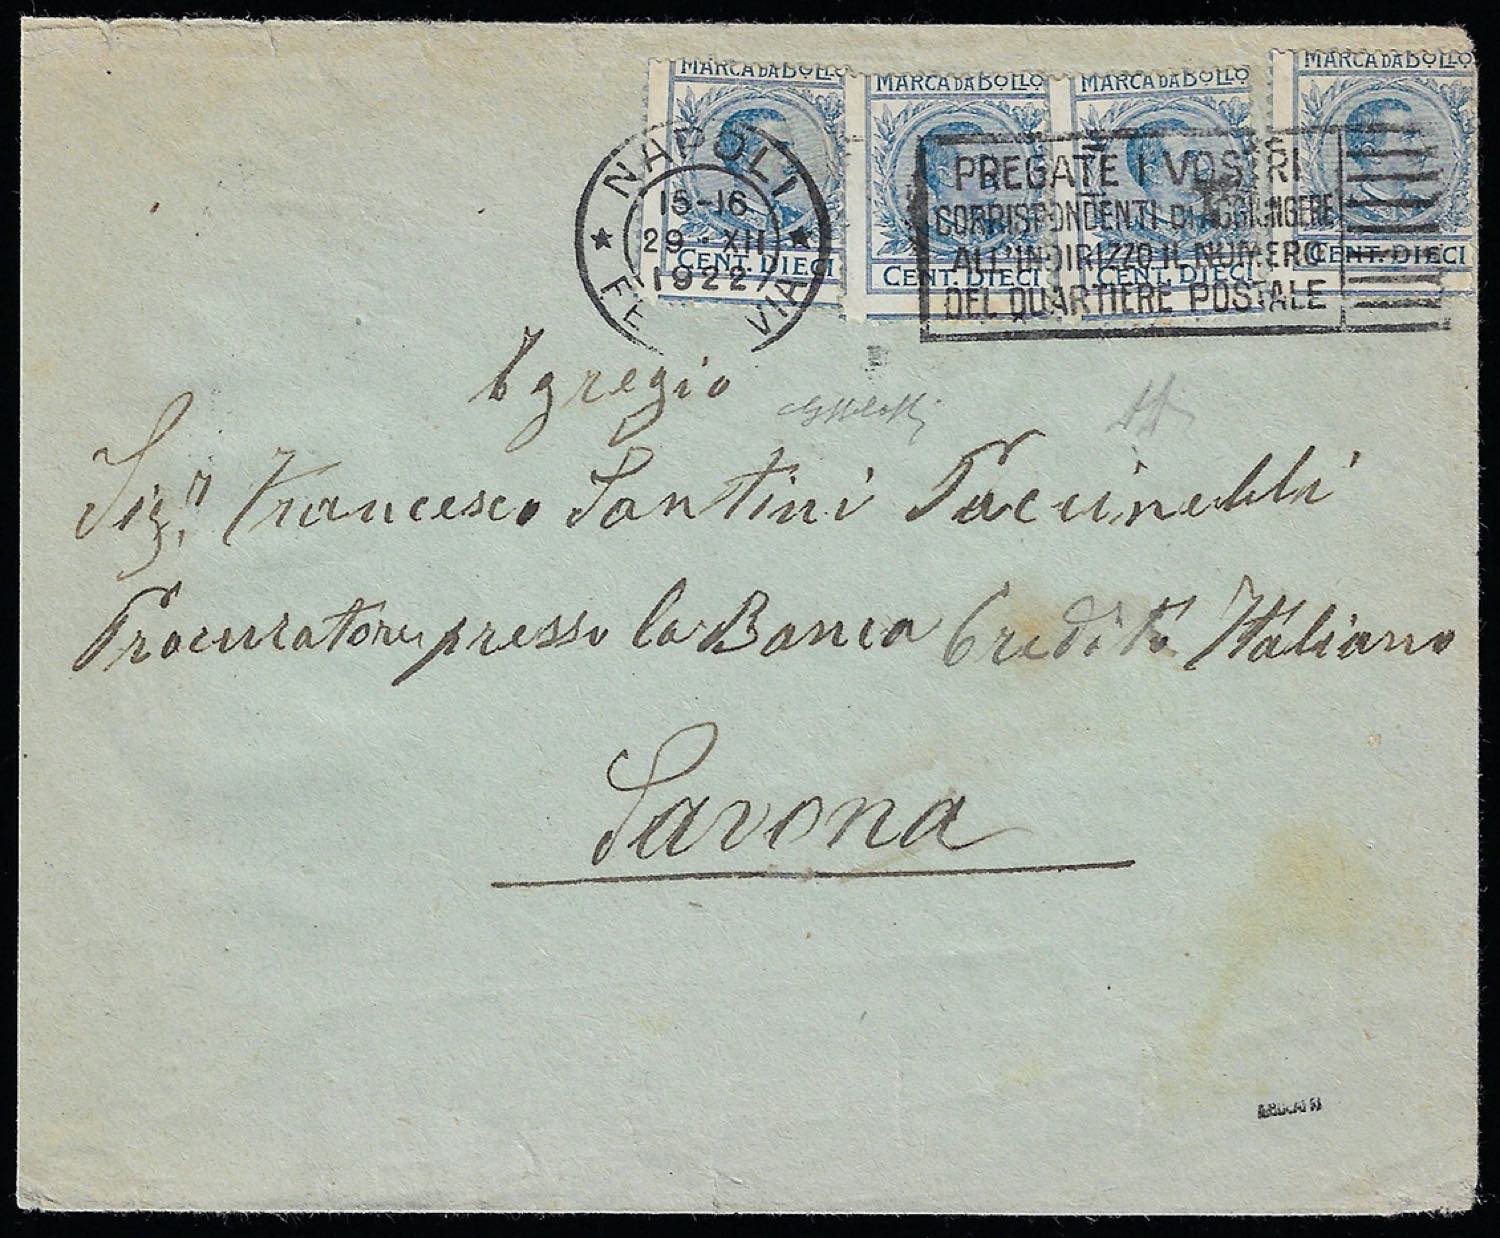 MARCA DA BOLLO MARCA DA BOLLO MARCA DA BOLLO MARCA DA BOLLO
CENT. DIECI CENT. DIECI CENT. DIECI CENT. DIECI
NAPOLI
15-16
29 · XII
1922
VIA
PREGATE I VOSTRI
CORRISPONDENTI DI AGGIUNGERE
ALL'INDIRIZZO IL NUMERO
DEL QUARTIERE POSTALE
Egregio
Sigr. Francesco Santini Paccinelli
Procuratore presso la Banca Credito Italiano
Savona